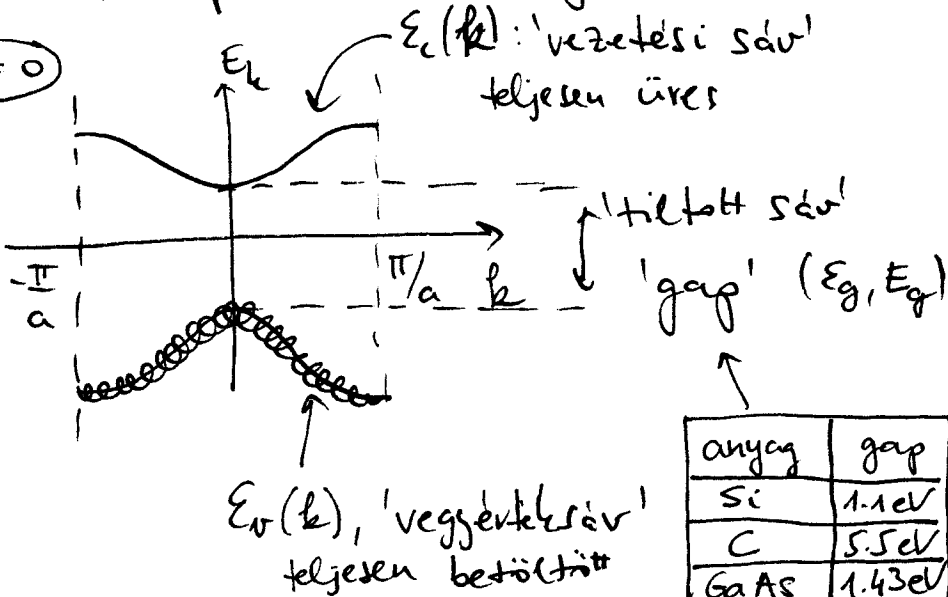 = 0
E_k
ε_c(k): 'vezetési sáv'
teljesen üres
'tiltott sáv'
-π/a
π/a
k
'gap' (ε_g, E_g)
ε_v(k), 'vegyértéksáv'
teljesen betöltött
anyag gap
Si 1.1eV
C 5.5eV
GaAs 1.43eV